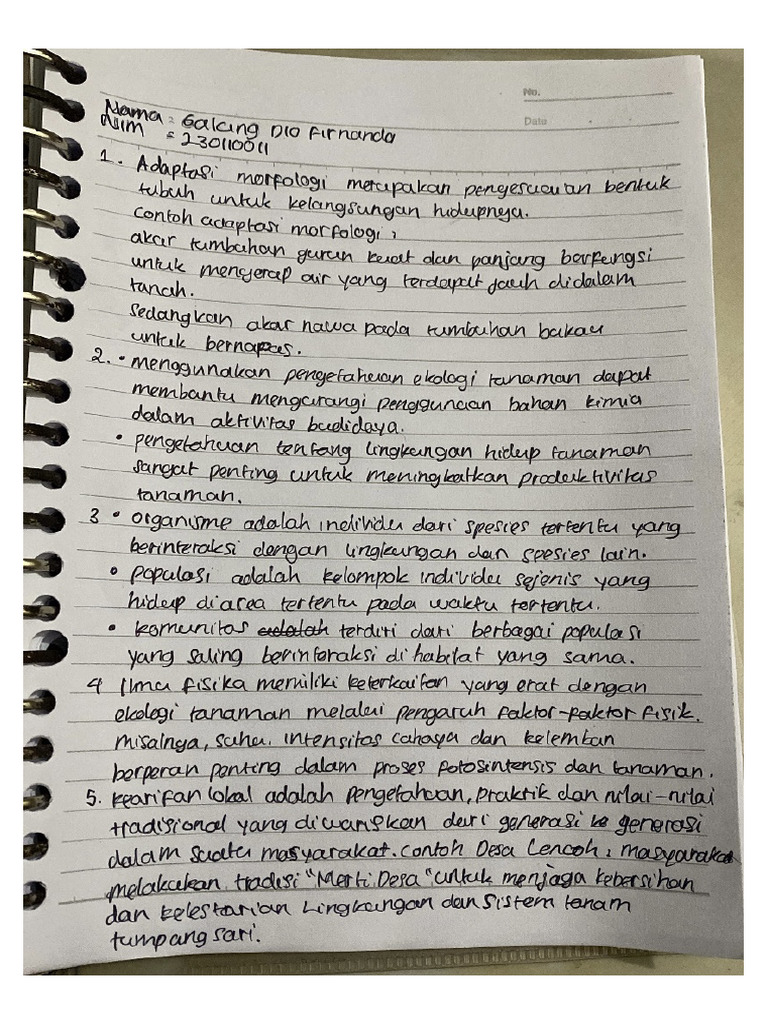 No.
Date
Nama : Galang Dio Firnanda
NIM = 230110011
1. Adaptasi morfologi merupakan penyesuaian bentuk
tubuh untuk kelangsungan hidupnya.
contoh adaptasi morfologi :
akar tumbuhan gurun kuat dan panjang berfungsi
untuk menyerap air yang terdapat jauh didalam
tanah.
Sedangkan akar nawa pada tumbuhan bakau
untuk bernapas.
2. • menggunakan pengetahuan ekologi tanaman dapat
membantu mengurangi penggunaan bahan kimia
dalam aktivitas budidaya.
• pengetahuan tentang lingkungan hidup tanaman
sangat penting untuk meningkatkan produktivitas
tanaman.
3 • organisme adalah individu dari spesies tertentu yang
berinteraksi dengan lingkungan dan spesies lain.
• populasi adalah kelompok individu sejenis yang
hidup diarea tertentu pada waktu tertentu.
• komunitas adalah terdiri dari berbagai populasi
yang saling berinteraksi di habitat yang sama.
4 Ilmu fisika memiliki keterkaitan yang erat dengan
ekologi tanaman melalui pengaruh faktor-faktor fisik.
misalnya, suhu. intensitas cahaya dan kelemban
berperan penting dalam proses fotosintensis dan tanaman.
5. kearifan lokal adalah pengetahuan, praktik dan nilai-nilai
tradisional yang diwariskan dari generasi ke generasi
dalam suatu masyarakat. contoh Desa Lencoh : masyarakat
melakukan tradisi "Merti Desa" untuk menjaga kebersihan
dan kelestarian Lingkungan dan sistem tanam
tumpang sari.